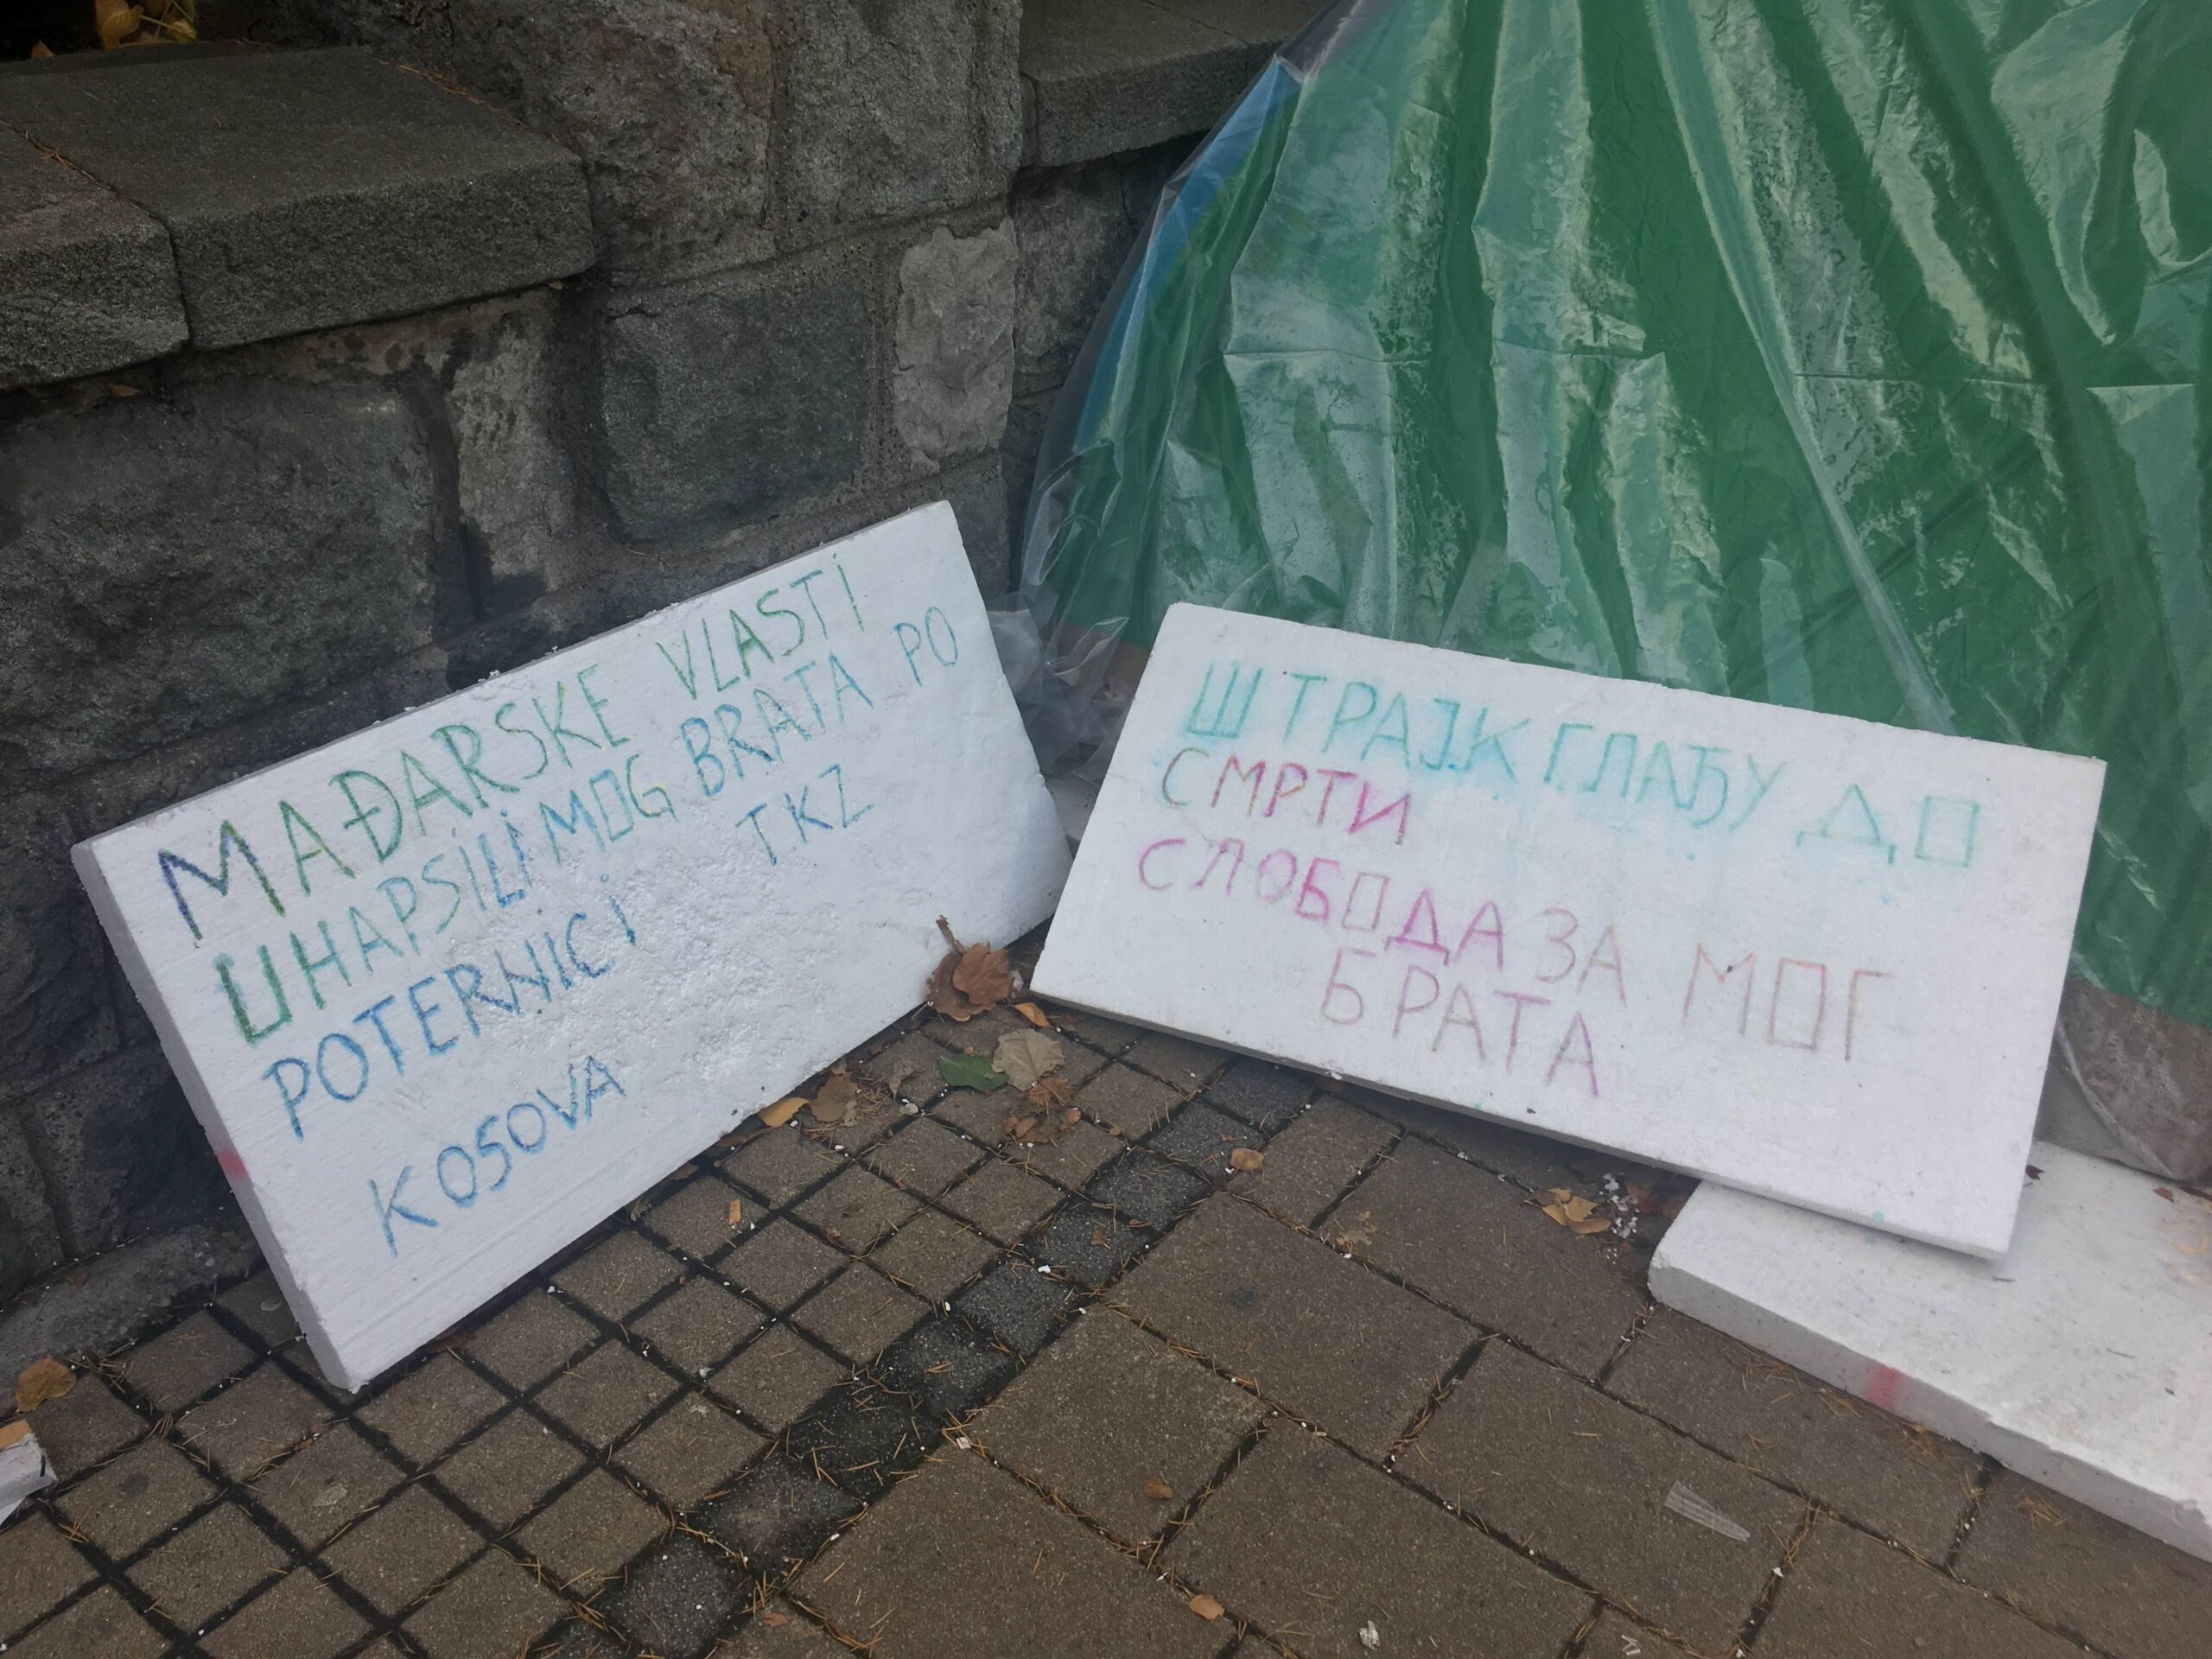 MAĐARSKE VLASTI
UHAPSILI MOG BRATA PO
POTERNICI TKZ
KOSOVA
ШТРАЈК ГЛАЂУ ДО
СМРТИ
СЛОБОДА ЗА МОГ
БРАТА